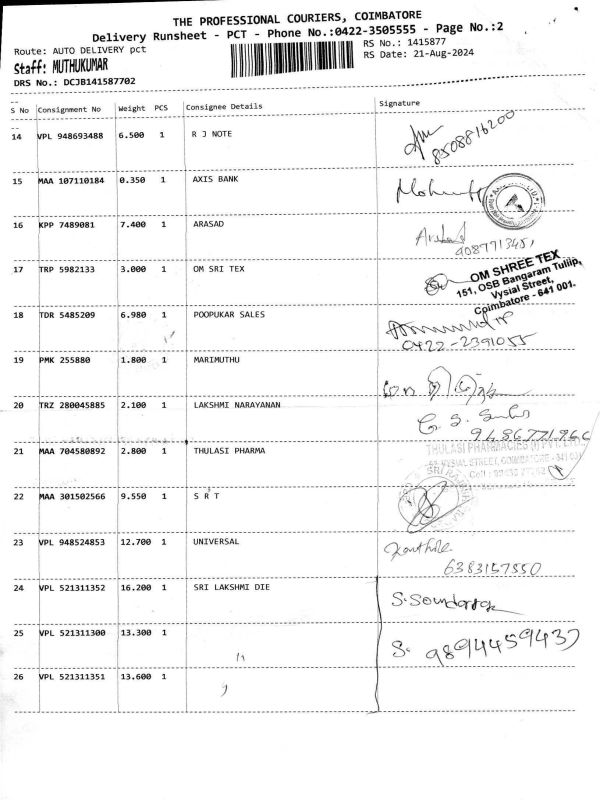 THE PROFESSIONAL COURIERS, COIMBATORE
Delivery Runsheet - PCT - Phone No.:0422-3505555 - Page No.:2
Route: AUTO DELIVERY pct
RS No.: 1415877
Staff: MUTHUKUMAR
RS Date: 21-Aug-2024
DRS No.: DCJB141587702
S No Consignment No Weight PCS Consignee Details Signature
14 VPL 948693488 6.500 1 R J NOTE
8508816200
15 MAA 107110184 0.350 1 AXIS BANK
16 KPP 7489081 7.400 1 ARASAD
9087713451
17 TRP 5982133 3.000 1 OM SRI TEX
OM SHREE TEX
151, OSB Bangaram Tuliip,
Vysial Street,
Coimbatore - 641 001.
18 TDR 5485209 6.980 1 POOPUKAR SALES
0422-2391055
19 PMK 255880 1.800 1 MARIMUTHU
20 TRZ 280045885 2.100 1 LAKSHMI NARAYANAN
21 MAA 704580892 2.800 1 THULASI PHARMA
THULASI PHARMACIES (I) PVT. LTD.,
VYSIAL STREET, COIMBATORE - 641 001
22 MAA 301502566 9.550 1 S R T
23 VPL 948524853 12.700 1 UNIVERSAL
6383157550
24 VPL 521311352 16.200 1 SRI LAKSHMI DIE
25 VPL 521311300 13.300 1
S. 9894459437
26 VPL 521311351 13.600 1